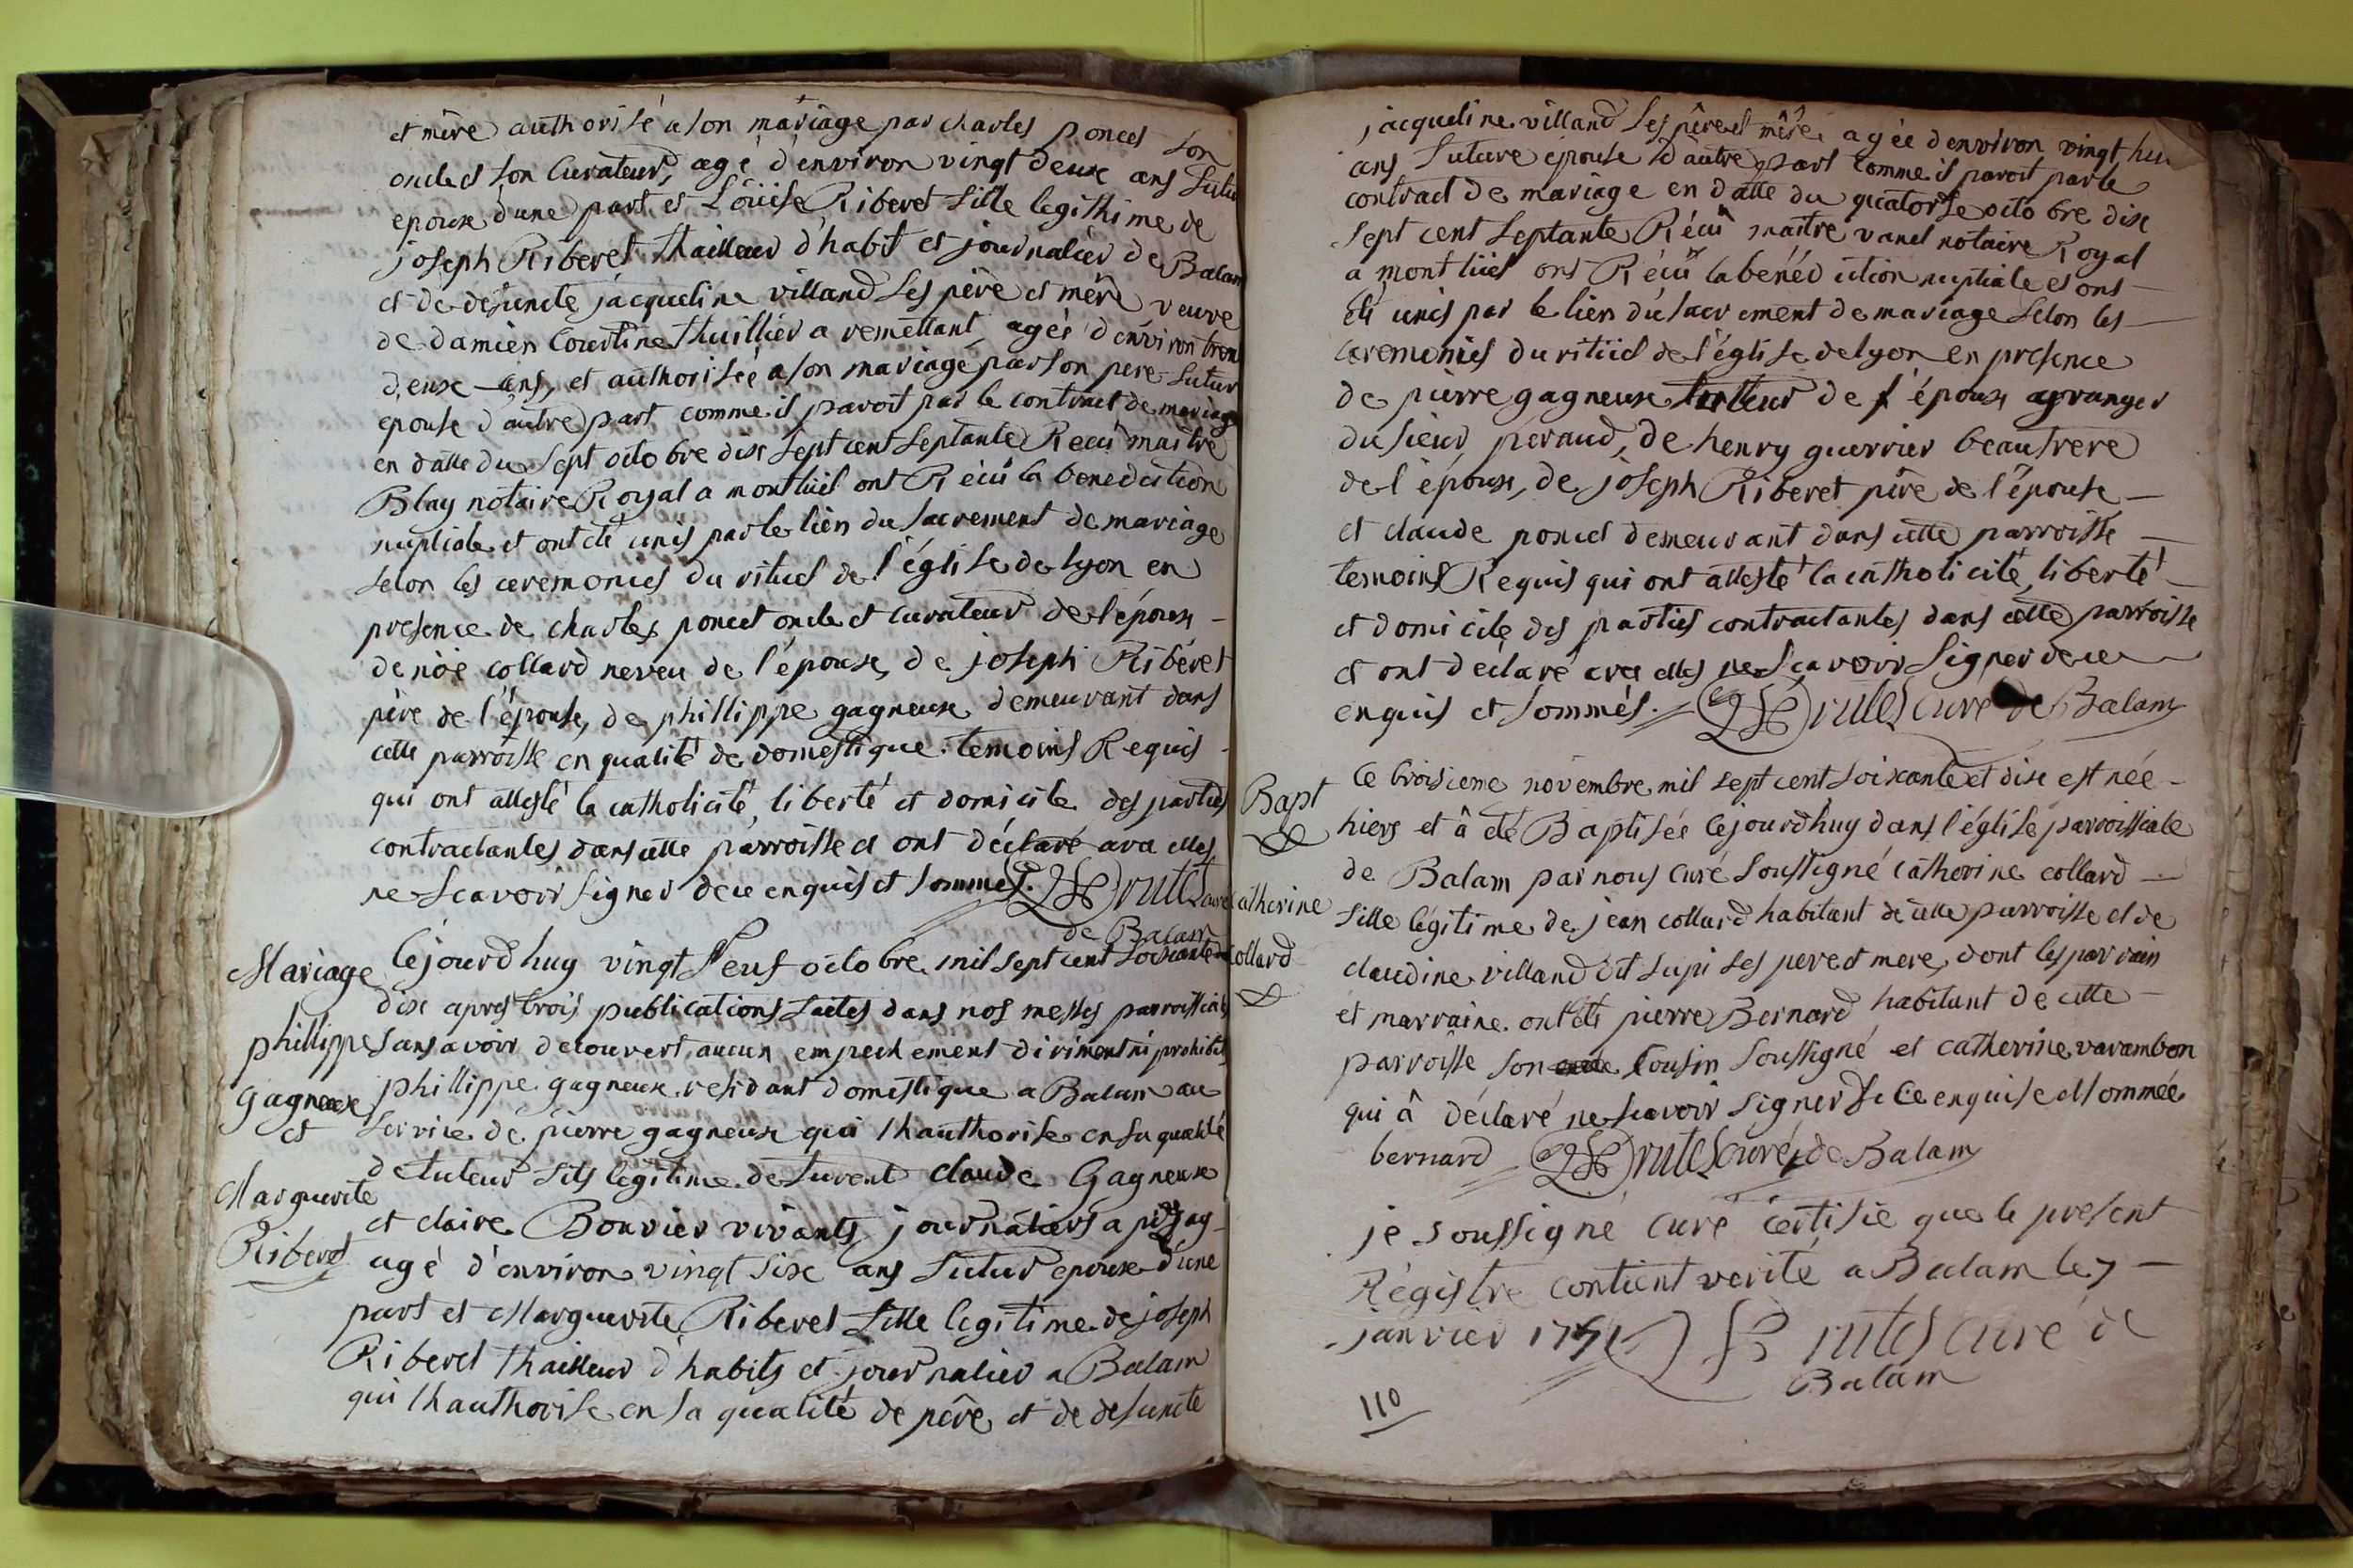 et mère authorisé a son mariage par charles poncet son
oncle et son Curateur, agé d'environ vingt deux ans futur
epoux d'une part et Loüise Riberet fille legithime de
joseph Riberet thailleur d'habit et journalier de Balam
et de defuncte jacqueline villand ses père et mère veuve
de damien Courtine thuillier a remettant, agée d'environ trente
deux ans, et authorisée a son mariage par son pere future
epouse d'autre part comme il paroit par le contract de mariage
en datte du sept octobre dix sept cent septante Recû maitre
Blay notaire Royal a montluel ont Récû la benediction
nuptiale et ont été unis par le lien du sacrement de mariage
selon les ceremonies du rituel de l'église de lyon en
presence de charles poncet oncle et curateur de l'époux
de noé collard neveu de l'épouse, de joseph Ribéret
père de l'épouse, de phillippe gagneux demeurant dans
cette parroisse en qualité de domestique. temoins Requis
qui ont attesté la catholicité, liberté et domicile des parties
contractantes dans cette parroisse et ont déclaré avec elles
ne scavoir signer de ce enquis et sommés. Brutes curé
de Balam
Mariage
phillippe
gagneux
et
Marguerite
Riberet
Cejourdhuy vingt neuf octobre mil sept cent soixante et
dix apres trois publications faites dans nos messes parroissiales
sans avoir decouvert aucun empechement diriment ni prohibitif
phillippe gagneux residant domestique a Balam au
service de pierre gagneux qui lhauthorise en sa qualité
de tuteur fils legitime de furent claude Gagneux
et claire Bouvier vivants journaliers a pizay
agé d'environ vingt six ans futur epoux d'une
part et Marguerite Riberet fille legitime de joseph
Riberet thailleur d'habits et journalier a Balam
qui lhauthorise en sa qualité de père et de defuncte
jacqueline villand ses père et mère agée d'environ vingt huit
ans future epouse d'autre part comme il paroit par le
contract de mariage en datte du quatorse octobre dix
sept cent septante Récû maitre vanel notaire Royal
a montluel ont Récû la bénédiction nuptiale et ont
été unis par le lien du sacrement de mariage selon les
ceremonies du rituel de l'église de lyon en presence
de pierre gagneux tutteur de l'époux granger
du sieur peraud, de henry guerrier beaufrere
de l'époux, de joseph Riberet père de l'épouse
et claude poncet demeurant dans cette parroisse
temoins Requis qui ont attesté la catholicité, liberté
et domicile des parties contractantes dans cette parroisse
et ont déclaré avec elles ne scavoir signer de ce
enquis et sommés. Brutes curé de Balam
Bapt
catherine
collard
Ce troisieme novembre mil sept cent soixante et dix est née
hiers et â été Baptisée cejourdhuy dans l'église parroissiale
de Balam par nous curé soussigné catherine collard
fille légitime de jean collard habitant de cette parroisse et de
claudine villand dit supi ses pere et mere, dont les parrain
et marraine ont été pierre Bernard habitant de cette
parroisse son cousin soussigné et catherine varambon
qui â déclaré ne scavoir signer de ce enquise et sommée
bernard Brutes curé de Balam
je soussigné curé certifie que le present
Régistre contient verité a Balam le 7
janvier 1771 Brutes curé de
Balam
110